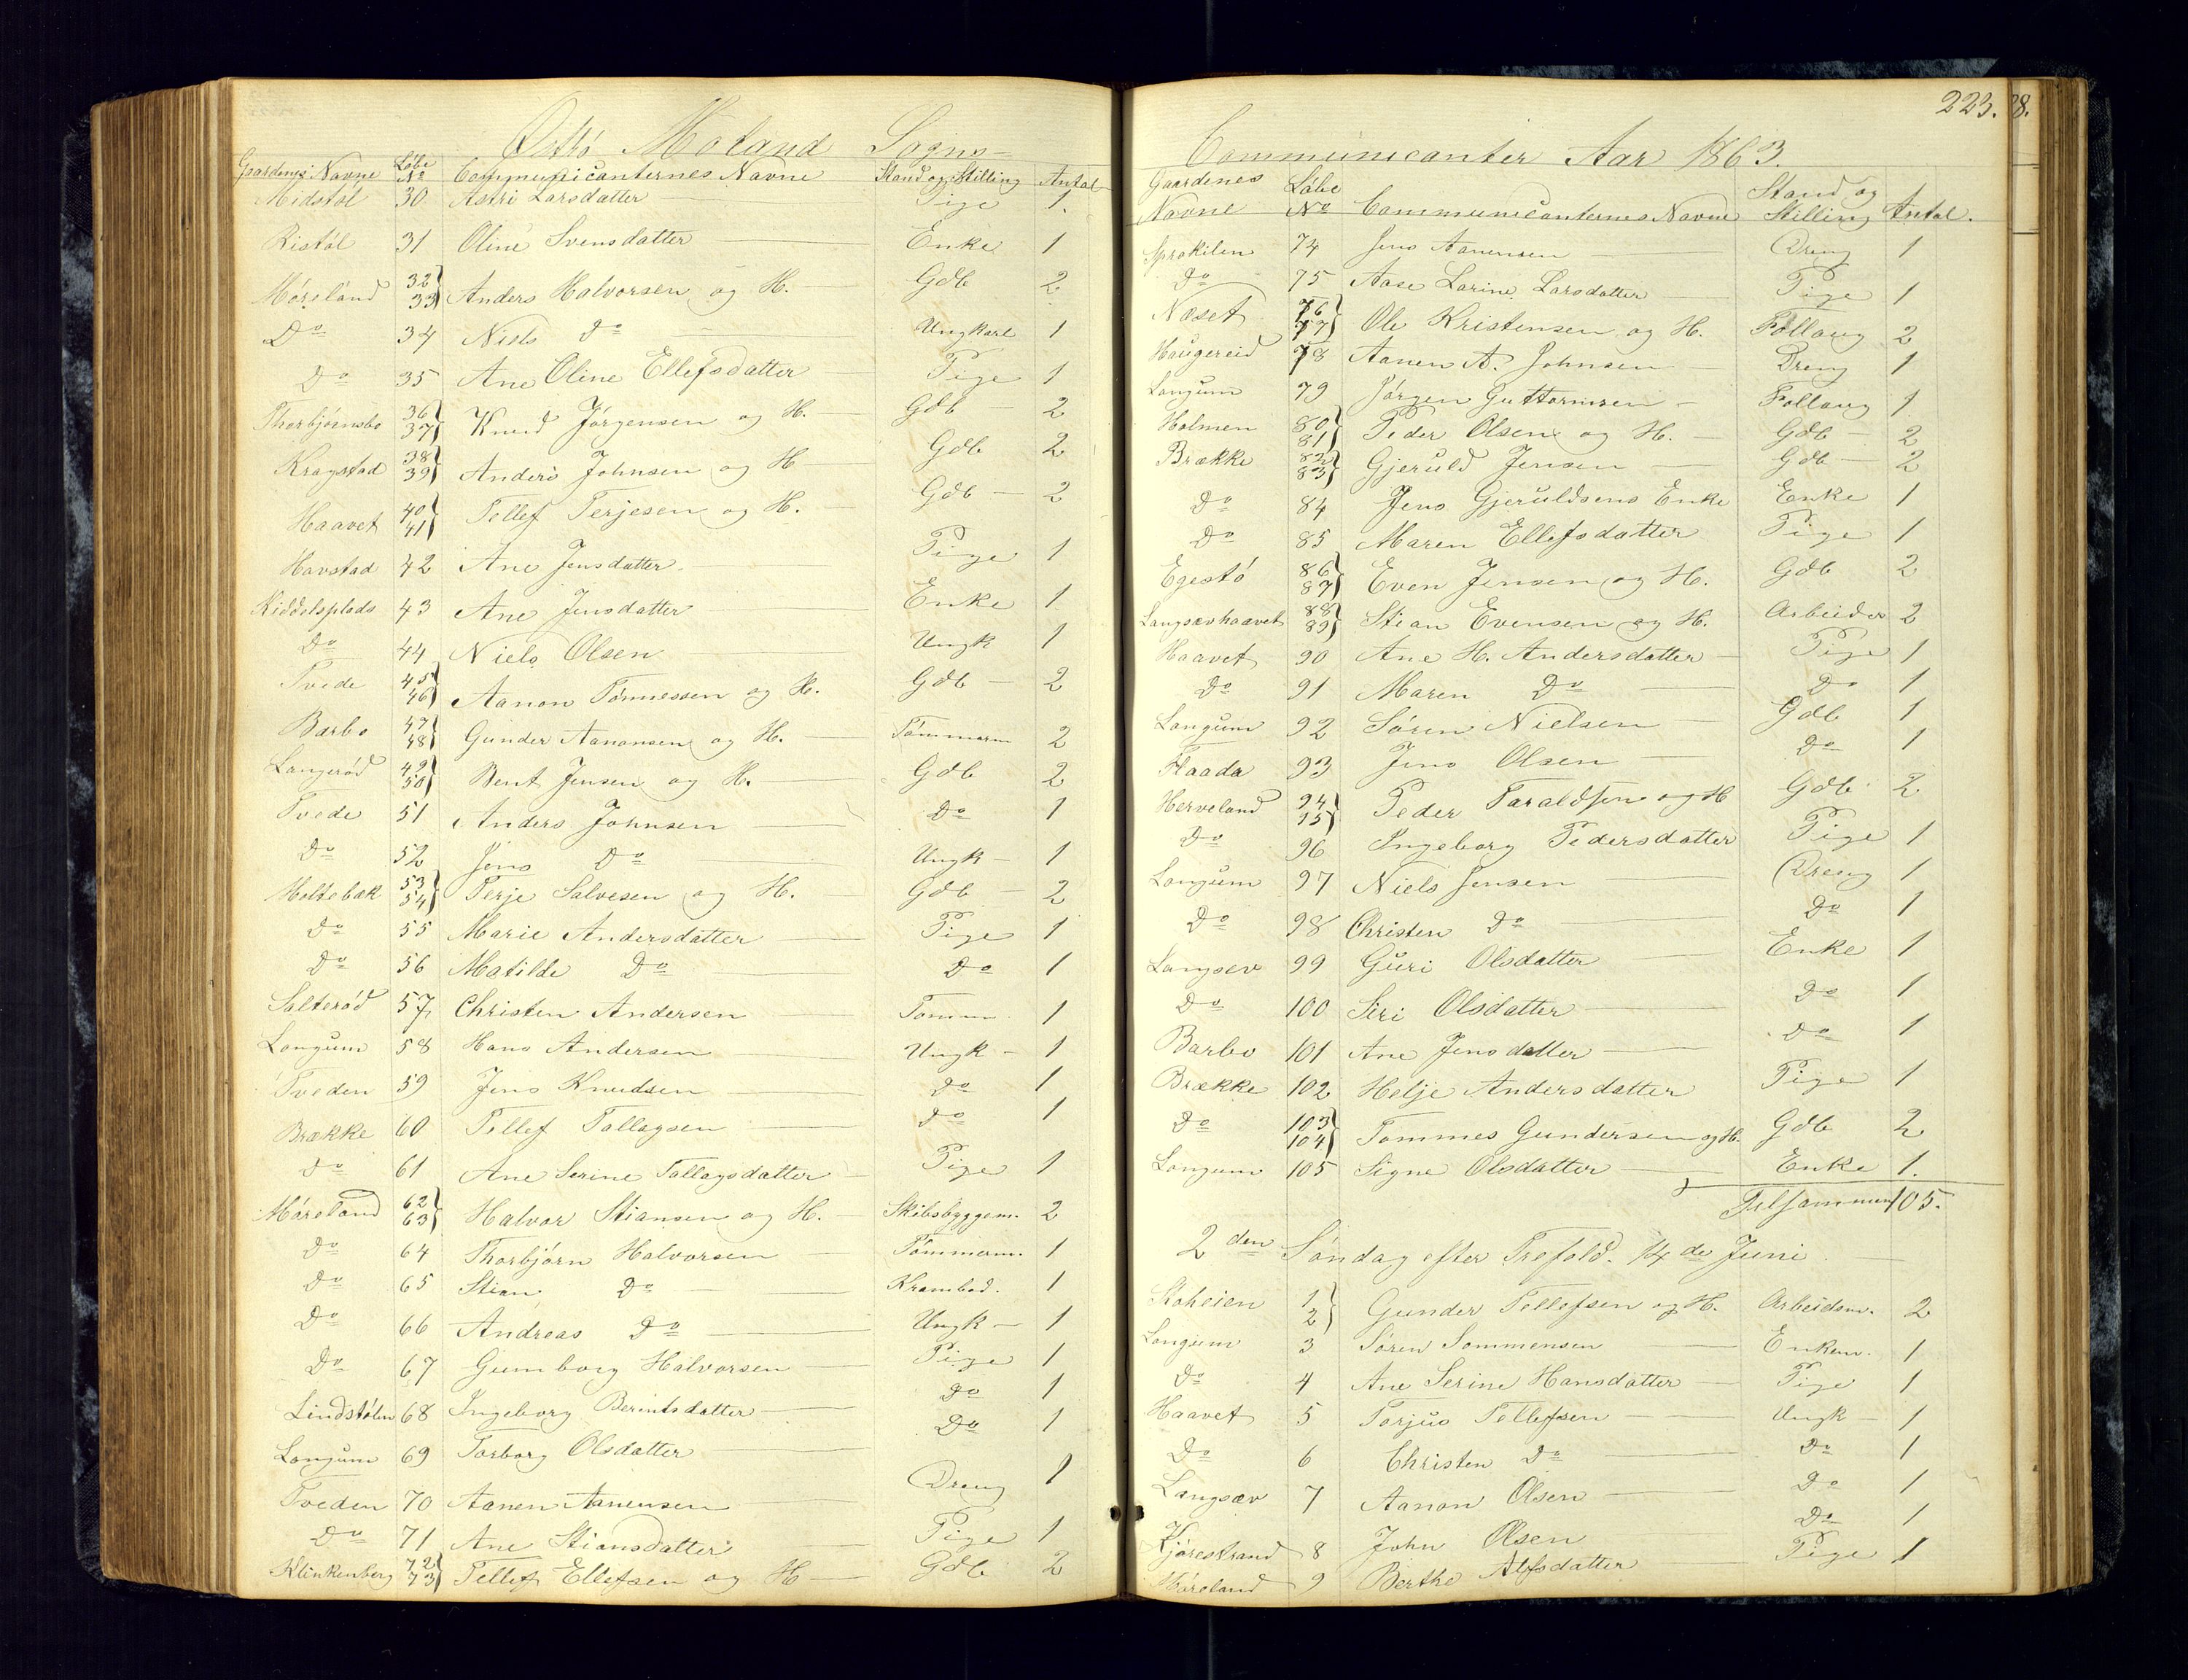 Østø Moland Sogns
Gaardenes Navne Løbe No Communicanternes Navne Stand og Stilling Antal
Midstøl 30 Astri Larsdatter Pige 1.
Ristøl 31 Oline Svensdatter Enke 1
Møreland 32 33 Anders Halvorsen og H. Gdb 2
Do 34 Niels Do Ungkarl 1
Do 35 Ane Oline Ellefsdatter Pige 1
Thorbjørnsbo 36 37 Knud Jørgensen og H. Gdb 2
Kragstad 38 39 Anders Johnsen og H Gdb 2
Haavet 40 41 Tellef Terjesen og H. Gdb 2
Havstad 42 Ane Jensdatter Pige 1
Kiddelsplads 43 Ane Jensdatter Enke 1
Do 44 Niels Olsen Ungk 1
Tvede 45 46 Aanon Tønnessen og H. Gdb 2
Barbo 47 48 Gunder Aanonsen og H. Tømmerm 2
Langerød 49 50 Bent Jensen og H. Gdb 2
Tvede 51 Anders Johnsen Do 1
Do 52 Jens Do Ungk 1
Holtebæk 53 54 Terje Salvesen og H. Gdb 2
Do 55 Marie Andersdatter Pige 1
Do 56 Matilde Do Do 1
Salterød 57 Christen Andersen Tømm 1
Longum 58 Hans Andersen Ungk 1
Tveden 59 Jens Knudsen Do 1
Brække 60 Tellef Tallagsen Do 1
Do 61 Ane Serine Tallagsdatter Pige 1
Møreland 62 63 Halvor Stiansen og H. Skibsbyggem. 2
Do 64 Thorbjørn Halvorsen Tømmerm. 1
Do 65 Stian Do Krambod. 1
Do 66 Andreas Do Ungk 1
Do 67 Gumborg Halvorsen Pige 1
Lindstølen 68 Ingeborg Berintsdatter Do 1
Longum 69 Torborg Olsdatter Do 1
Tveden 70 Aanen Aanensen Dreng 1
Do 71 Ane Stiansdatter Pige 1
Klinkenberg 72 73 Tellef Ellefsen og H Gdb 2
223.
28.
Communicanter Aar 1863.
Gaardenes Navne Løbe No Communicanternes Navne Stand og Stilling Antal.
Sprokilen 74 Jens Aanensen Dreng 1
Do 75 Aase Larine Larsdatter Pige 1
Næset 76 77 Ole Kristensen og H. Follaug 2
Haugereid 78 Aanen A. Johnsen Dreng 1
Longum 79 Jørgen Guttormsen Follaug 1
Holmen 80 81 Peder Olsen og H. Gdb 2
Brække 82 83 Gjeruld Jensen Gdb 2
Do 84 Jens Gjeruldsens Enke Enke 1
Do 85 Maren Ellefsdatter Pige 1
Egestø 86 87 Even Jensen og H. Gdb 2
Langsævhaavet 88 89 Stian Evensen og H. Arbeider 2
Haavet 90 Ane H. Andersdatter Pige 1
Do 91 Maren Do Do 1
Longum 92 Søren Nielsen Gdb 1
Flaada 93 Jens Olsen Do 1
Herveland 94 95 Peder Taraldsen og H Gdb 2
Do 96 Ingeborg Pedersdatter Pige 1
Longum 97 Niels Jensen Dreng 1
Do 98 Christen Do Do 1
Langsev 99 Guri Olsdatter Enke 1
Do 100 Siri Olsdatter Do 1
Barbo 101 Ane Jensdatter Do 1
Brække 102 Helje Andersdatter Pige 1
Do 103 104 Tommes Gundersen og H. Gdb 2
Longum 105 Signe Olsdatter Enke 1.
Tilsammen 105.
2den Søndag efter Trefold. 14de Juni
Stoheien 1 2 Gunder Tellefsen og H. Arbeidsm. 2
Longum 3 Søren Sommensen Enkem. 1
Do 4 Ane Serine Hansdatter Pige 1
Haavet 5 Torjus Tellefsen Ungk 1
Do 6 Christen Do Do 1
Langsæv 7 Aanon Olsen Do 1
Kjørestrand 8 John Olsen Do 1
Møreland 9 Berthe Alfsdatter Pige 1